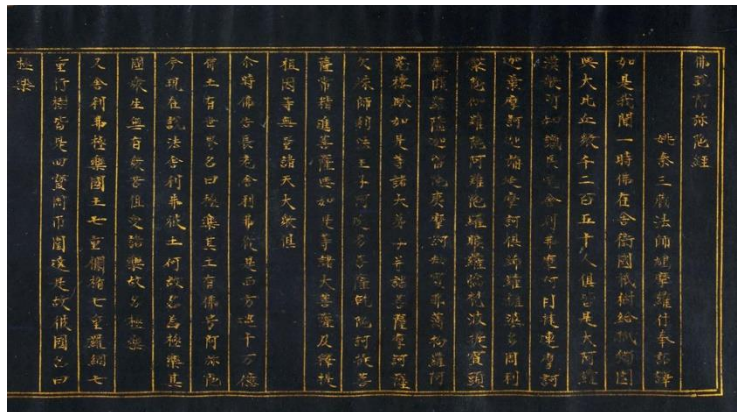 佛說阿弥陀經
姚秦三藏法師鳩摩羅什奉詔譯
如是我聞一時佛在舍衛國祇樹給孤獨園
與大比丘衆千二百五十人俱皆是大阿羅
漢衆所知識長老舍利弗摩訶目揵連摩訶
迦葉摩訶迦旃延摩訶俱絺羅離婆多周利
槃陀伽難陀阿難陀羅睺羅憍梵波提賓頭
盧頗羅墮迦留陀夷摩訶劫賓那薄拘羅阿
㝹樓馱如是等諸大弟子并諸菩薩摩訶薩
文殊師利法王子阿逸多菩薩乾陀訶提菩
薩常精進菩薩與如是等諸大菩薩及釋提
桓因等無量諸天大衆俱
尒時佛告長老舍利弗從是西方過十万億
佛土有世界名曰極樂其土有佛号阿弥陀
今現在說法舍利弗彼土何故名為極樂其
國衆生無有衆苦但受諸樂故名極樂
又舍利弗極樂國土七重欄楯七重羅網七
重行樹皆是四寶周帀圍遶是故彼國名曰
極樂